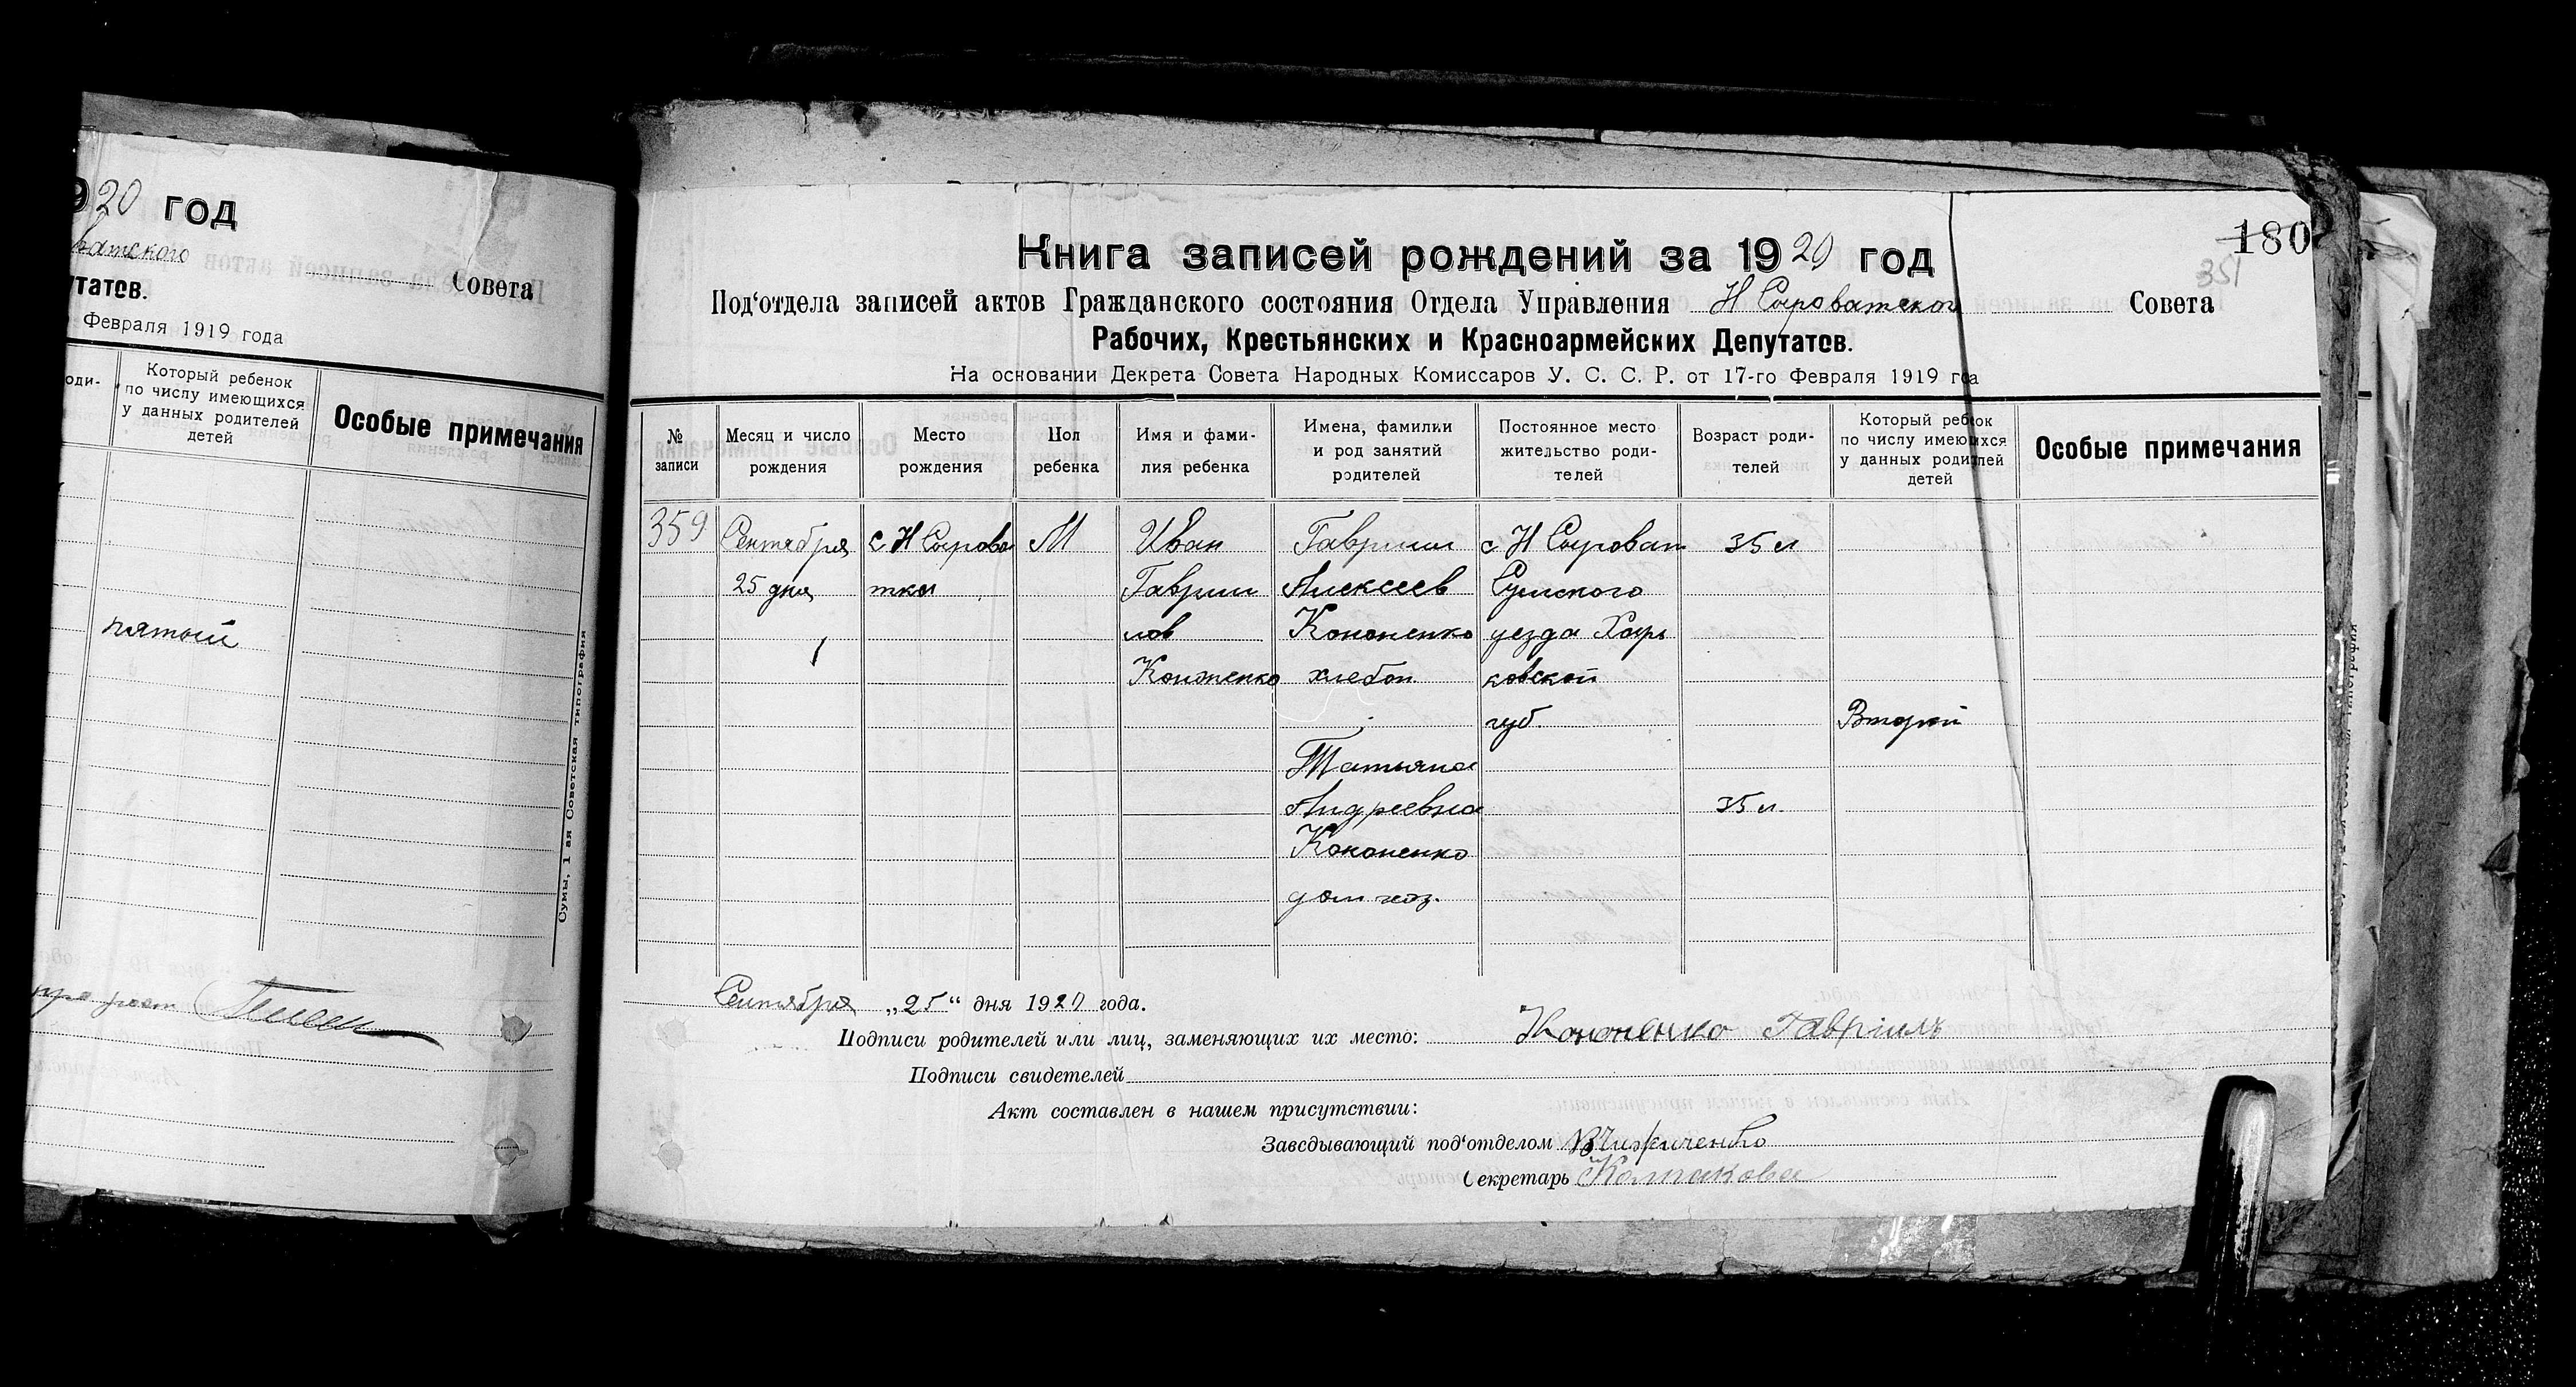 920 год
ватского Совета
татов.
Февраля 1919 года
оди-
Который ребенок
по числу имеющихся
у данных родителей
детей
Особые примечания
пятый
Сумы, 1 ая Советская типография
180
351
Книга записей рождений за 1920 год
Под‘отдела записей актов Гражданского состояния Отдела Управления Н Сыроватског Совета
Рабочих, Крестьянских и Красноармейских Депутатов.
На основании Декрета Совета Народных Комиссаров У. С. С. Р. от 17-го Февраля 1919 года
№
записи
Месяц и число
рождения
Место
рождения
Пол
ребенка
Имя и фами-
лия ребенка
Имена, фамилии
и род занятий
родителей
Постоянное место
жительство роди-
телей
Возраст роди-
телей
Который ребенок
по числу имеющихся
у данных родителей
детей
Особые примечания
359 Сентября с Н Сырова М Иван Гавриил с Н Сыроват 35 л
25 дня тка Гаврии Алексеев Сумского
лов Кононенко уезда Харь
Кононенко хлебоп. ковской
губ. Второй
Татьяна
Андреевна 35 л.
Кононенко
дом хоз.
Сентября „25“ дня 1920 года.
Подписи родителей или лиц, заменяющих их место: Кононенко Гавріилъ
Подписи свидетелей
Акт составлен в нашем присутствии:
Заведывающий под‘отделом
Секретарь